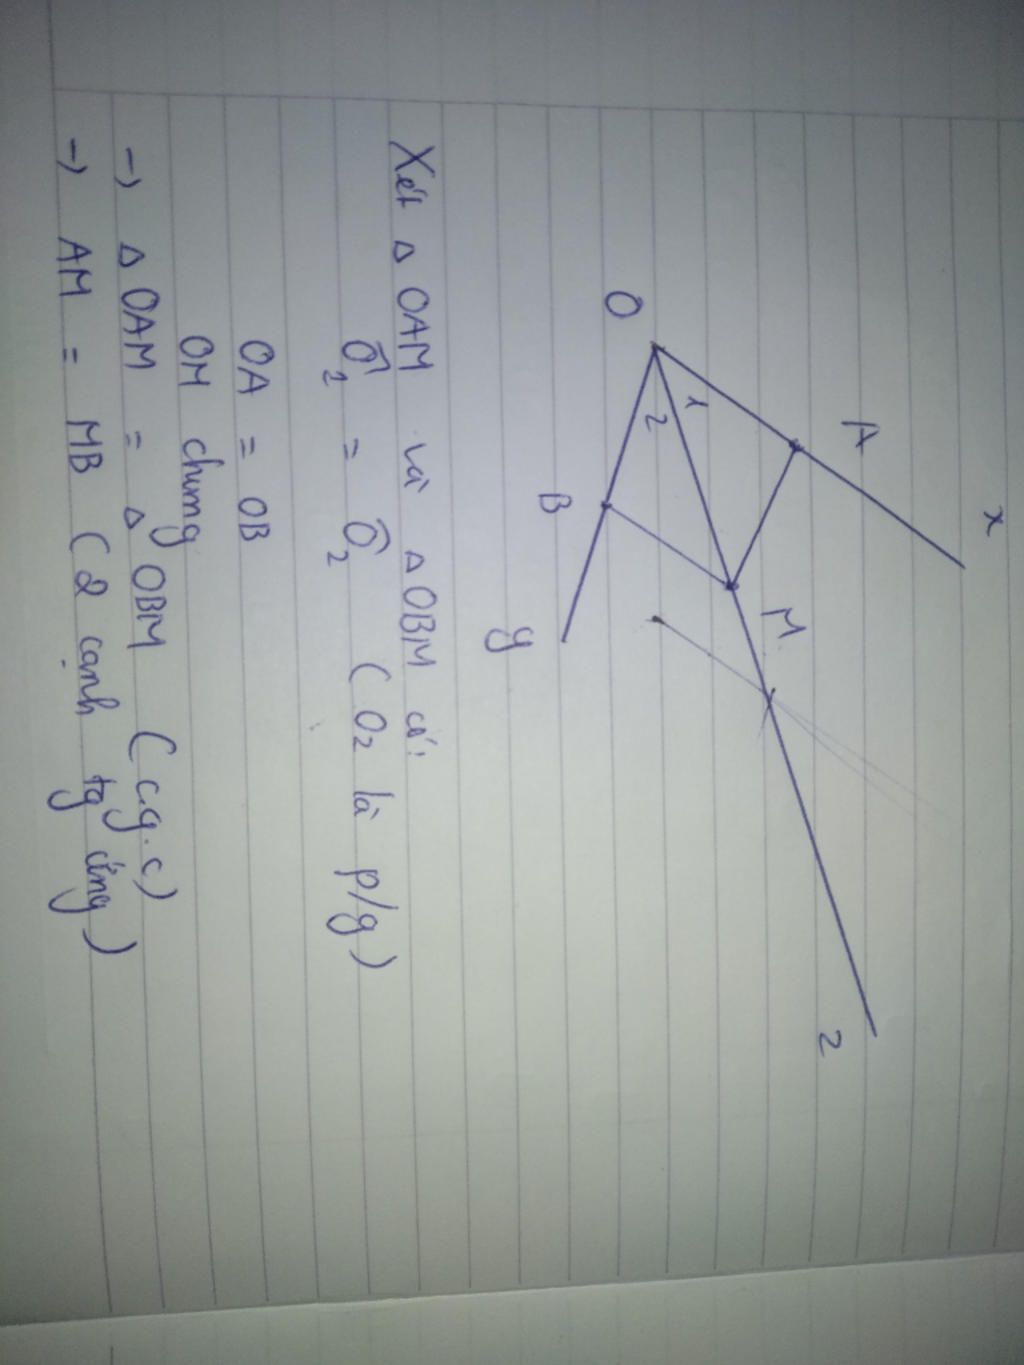 x
A
O
1
2
M
B
y
z
Xét △ OAM và △ OBM có:
Ô1 = Ô2 ( Oz là p/g )
OA = OB
OM chung
→ △ OAM = △ OBM ( c.g.c )
→ AM = MB ( 2 cạnh tg ứng )